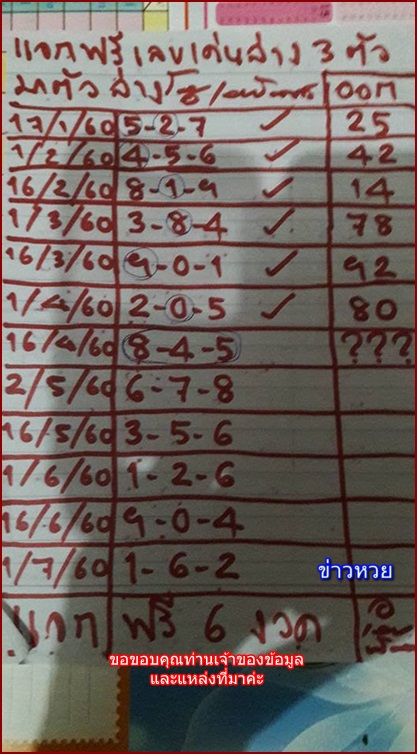 แจกฟรี เลขเด่นล่าง 3 ตัว
มาตัว ล่าง ออก
17/1/60 5-2-7 ✓ 25
1/2/60 4-5-6 ✓ 42
16/2/60 8-1-9 ✓ 14
1/3/60 3-8-4 ✓ 78
16/3/60 9-0-1 ✓ 92
1/4/60 2-0-5 ✓ 80
16/4/60 8-4-5 ???
2/5/60 6-7-8
16/5/60 3-5-6
1/6/60 1-2-6
16/6/60 9-0-4
1/7/60 1-6-2
ข่าวหวย
แจก ฟรี 6 งวด
ขอขอบคุณท่านเจ้าของข้อมูล
และแหล่งที่มาค่ะ